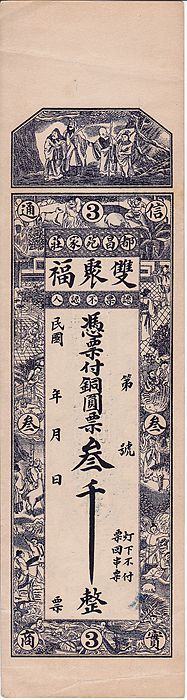 信 3 通
都昌苑家莊
雙聚福
認票不認人
第 號
灯下不付
票回串票
憑票付銅圓票叁千整
民國 年 月 日 票
叁 叁
實 3 商